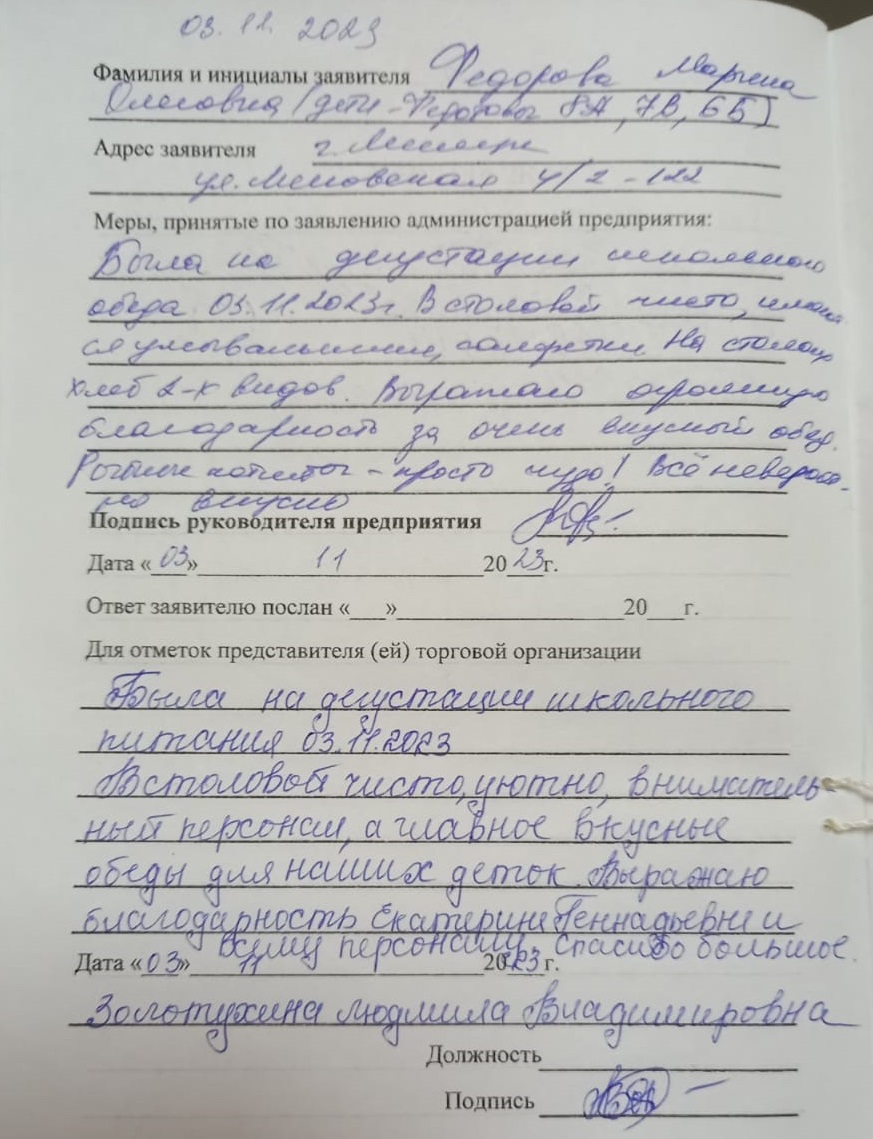 03.11.2023
Фамилия и инициалы заявителя Федорова Марина
Олеговна (дети - Федоровы 8А, 7В, 6Б)
Адрес заявителя г.
ул. 4/2 - 122
Меры, принятые по заявлению администрацией предприятия:
Была на дегустации школьного
обеда 03.11.2023г. В столовой чисто, имеют
ся умывальники, салфетки. На столах
хлеб 2-х видов. Выражаю огромную
благодарность за очень вкусный обед.
Рыбные котлеты - просто чудо! Всё невероят-
но вкусно
Подпись руководителя предприятия
Дата «03» 11 2023г.
Ответ заявителю послан «___»____________________20___г.
Для отметок представителя (ей) торговой организации
Была на дегустации школьного
питания 03.11.2023
В столовой чисто, уютно, вниматель-
ный персонал, а главное вкусные
обеды для наших деток. Выражаю
благодарность Екатерине Геннадьевне и
всему персоналу. Спасибо большое.
Дата «03» 11 2023г.
Золотухина Людмила Владимировна
Должность
Подпись